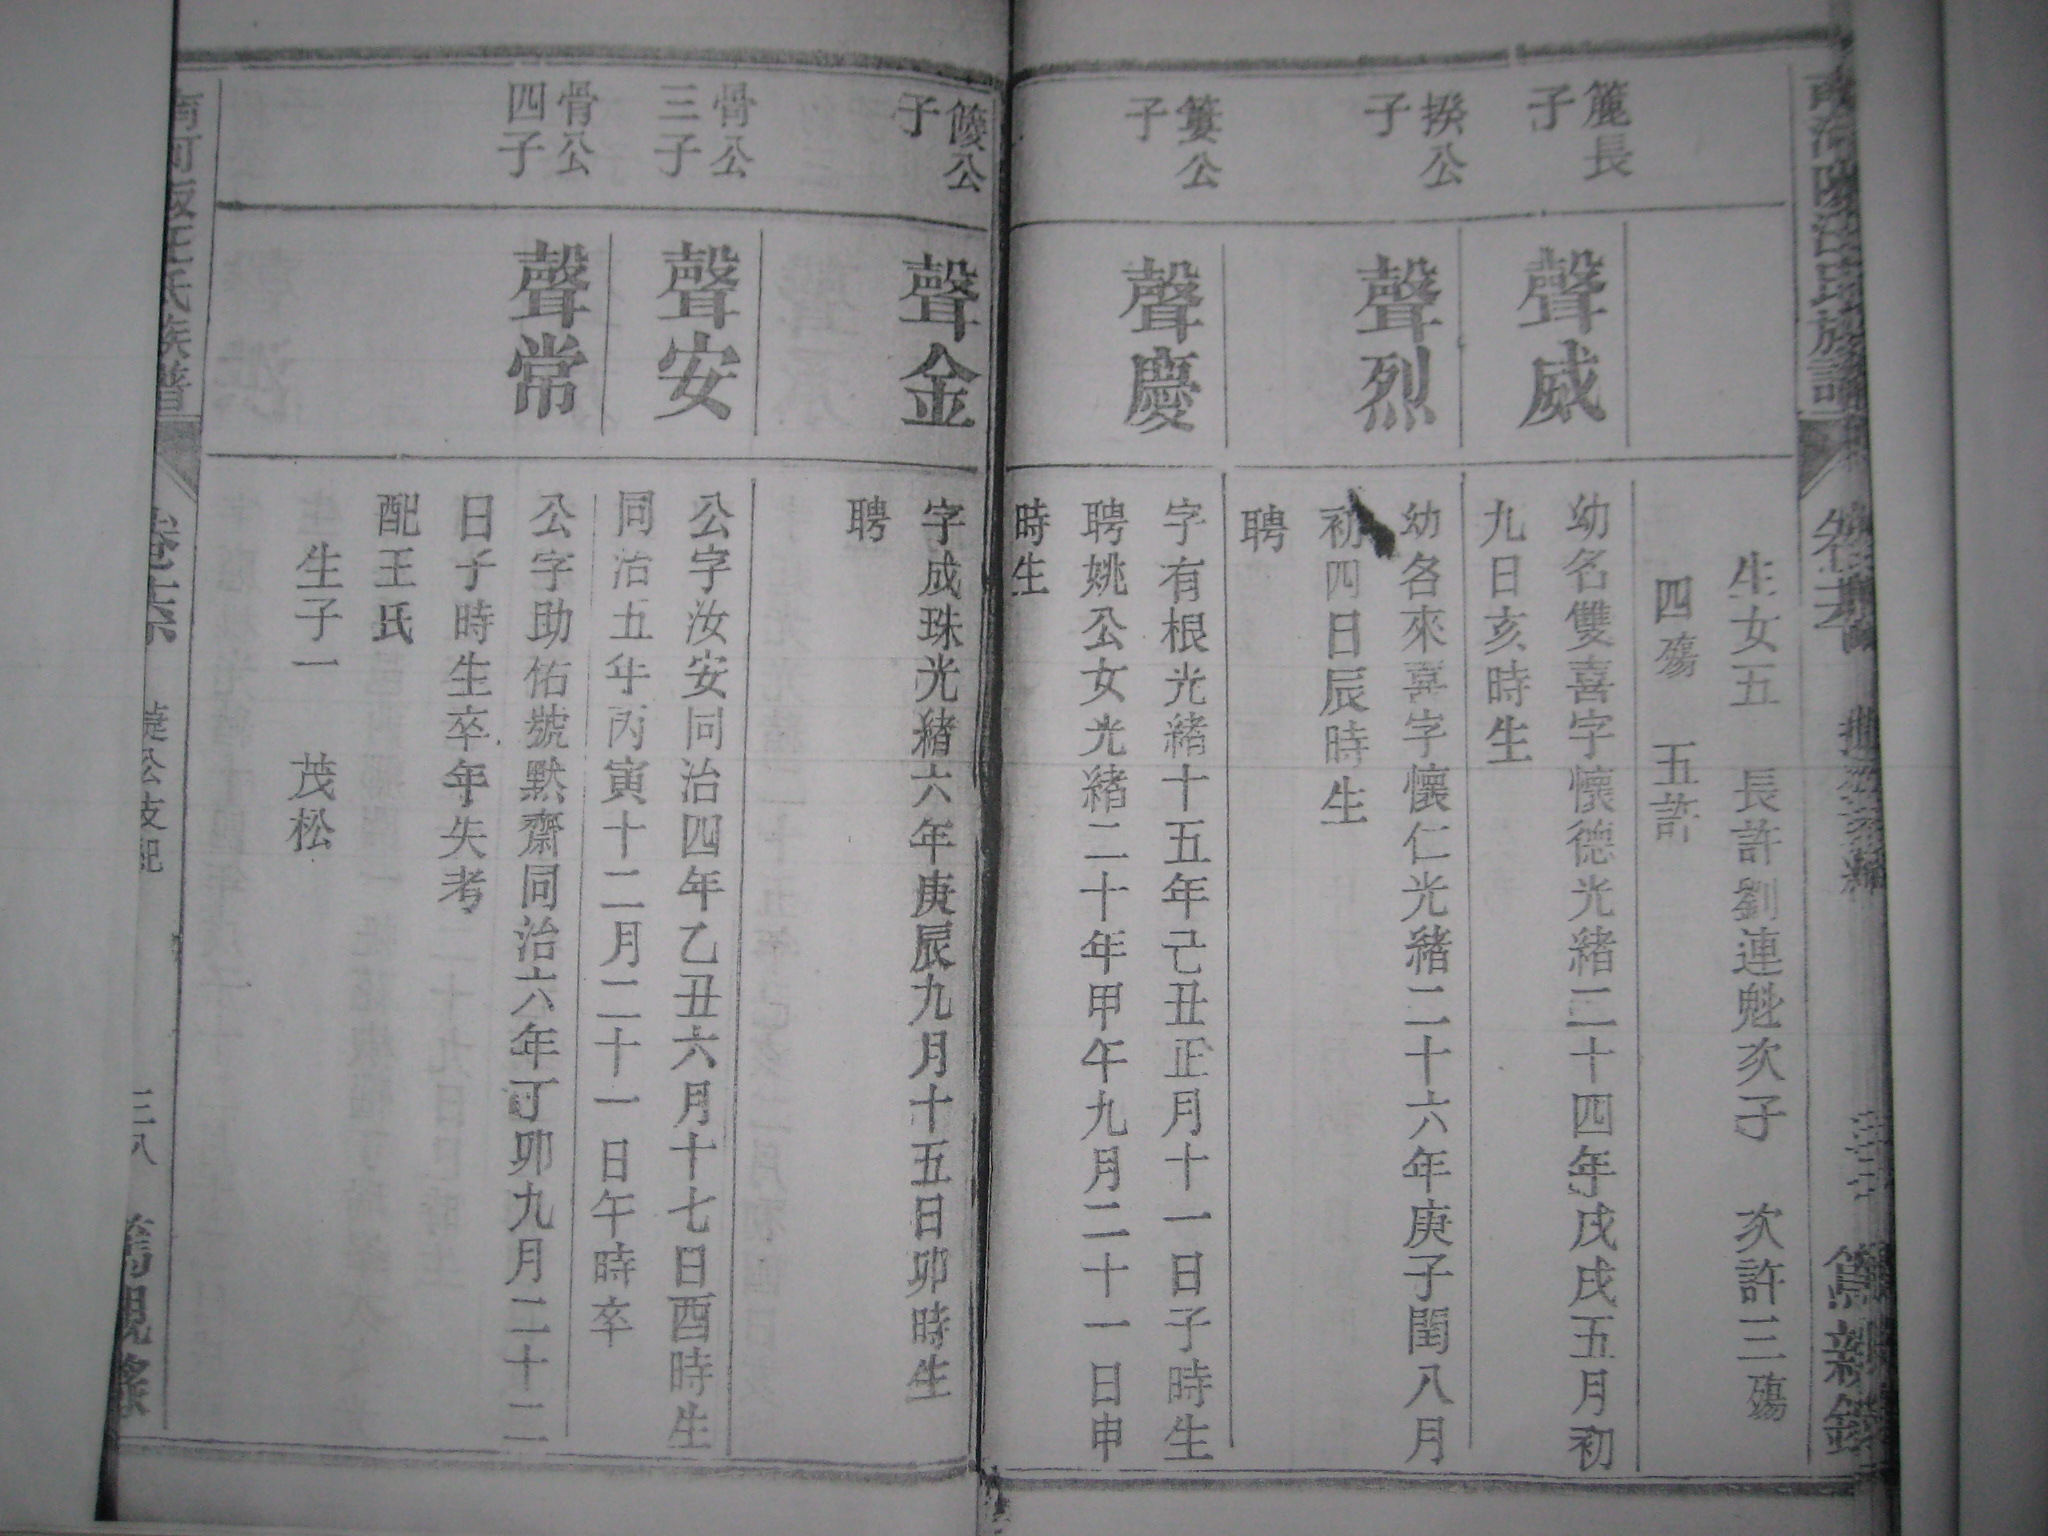 生女五　長許劉連魁次子　次許三殤
四殤　五許
篪長
子
聲威
幼名雙喜字懷德光緒二十四年戌戌五月初
九日亥時生
揆公
子
聲烈
幼各來喜字懷仁光緒二十六年庚子閏八月
初四日辰時生
聘
簍公
子
聲慶
字有根光緒十五年己丑正月十一日子時生
聘姚公女光緒二十年甲午九月二十一日申
時生
公
子
聲金
字成珠光緒六年庚辰九月十五日卯時生
聘
骨公
三子
聲安
公字汝安同治四年乙丑六月十七日酉時生
同治五年丙寅十二月二十一日午時卒
骨公
四子
聲常
公字助佑號默齋同治六年丁卯九月二十二
日子時生卒年失考
配王氏
生子一　茂松
三八